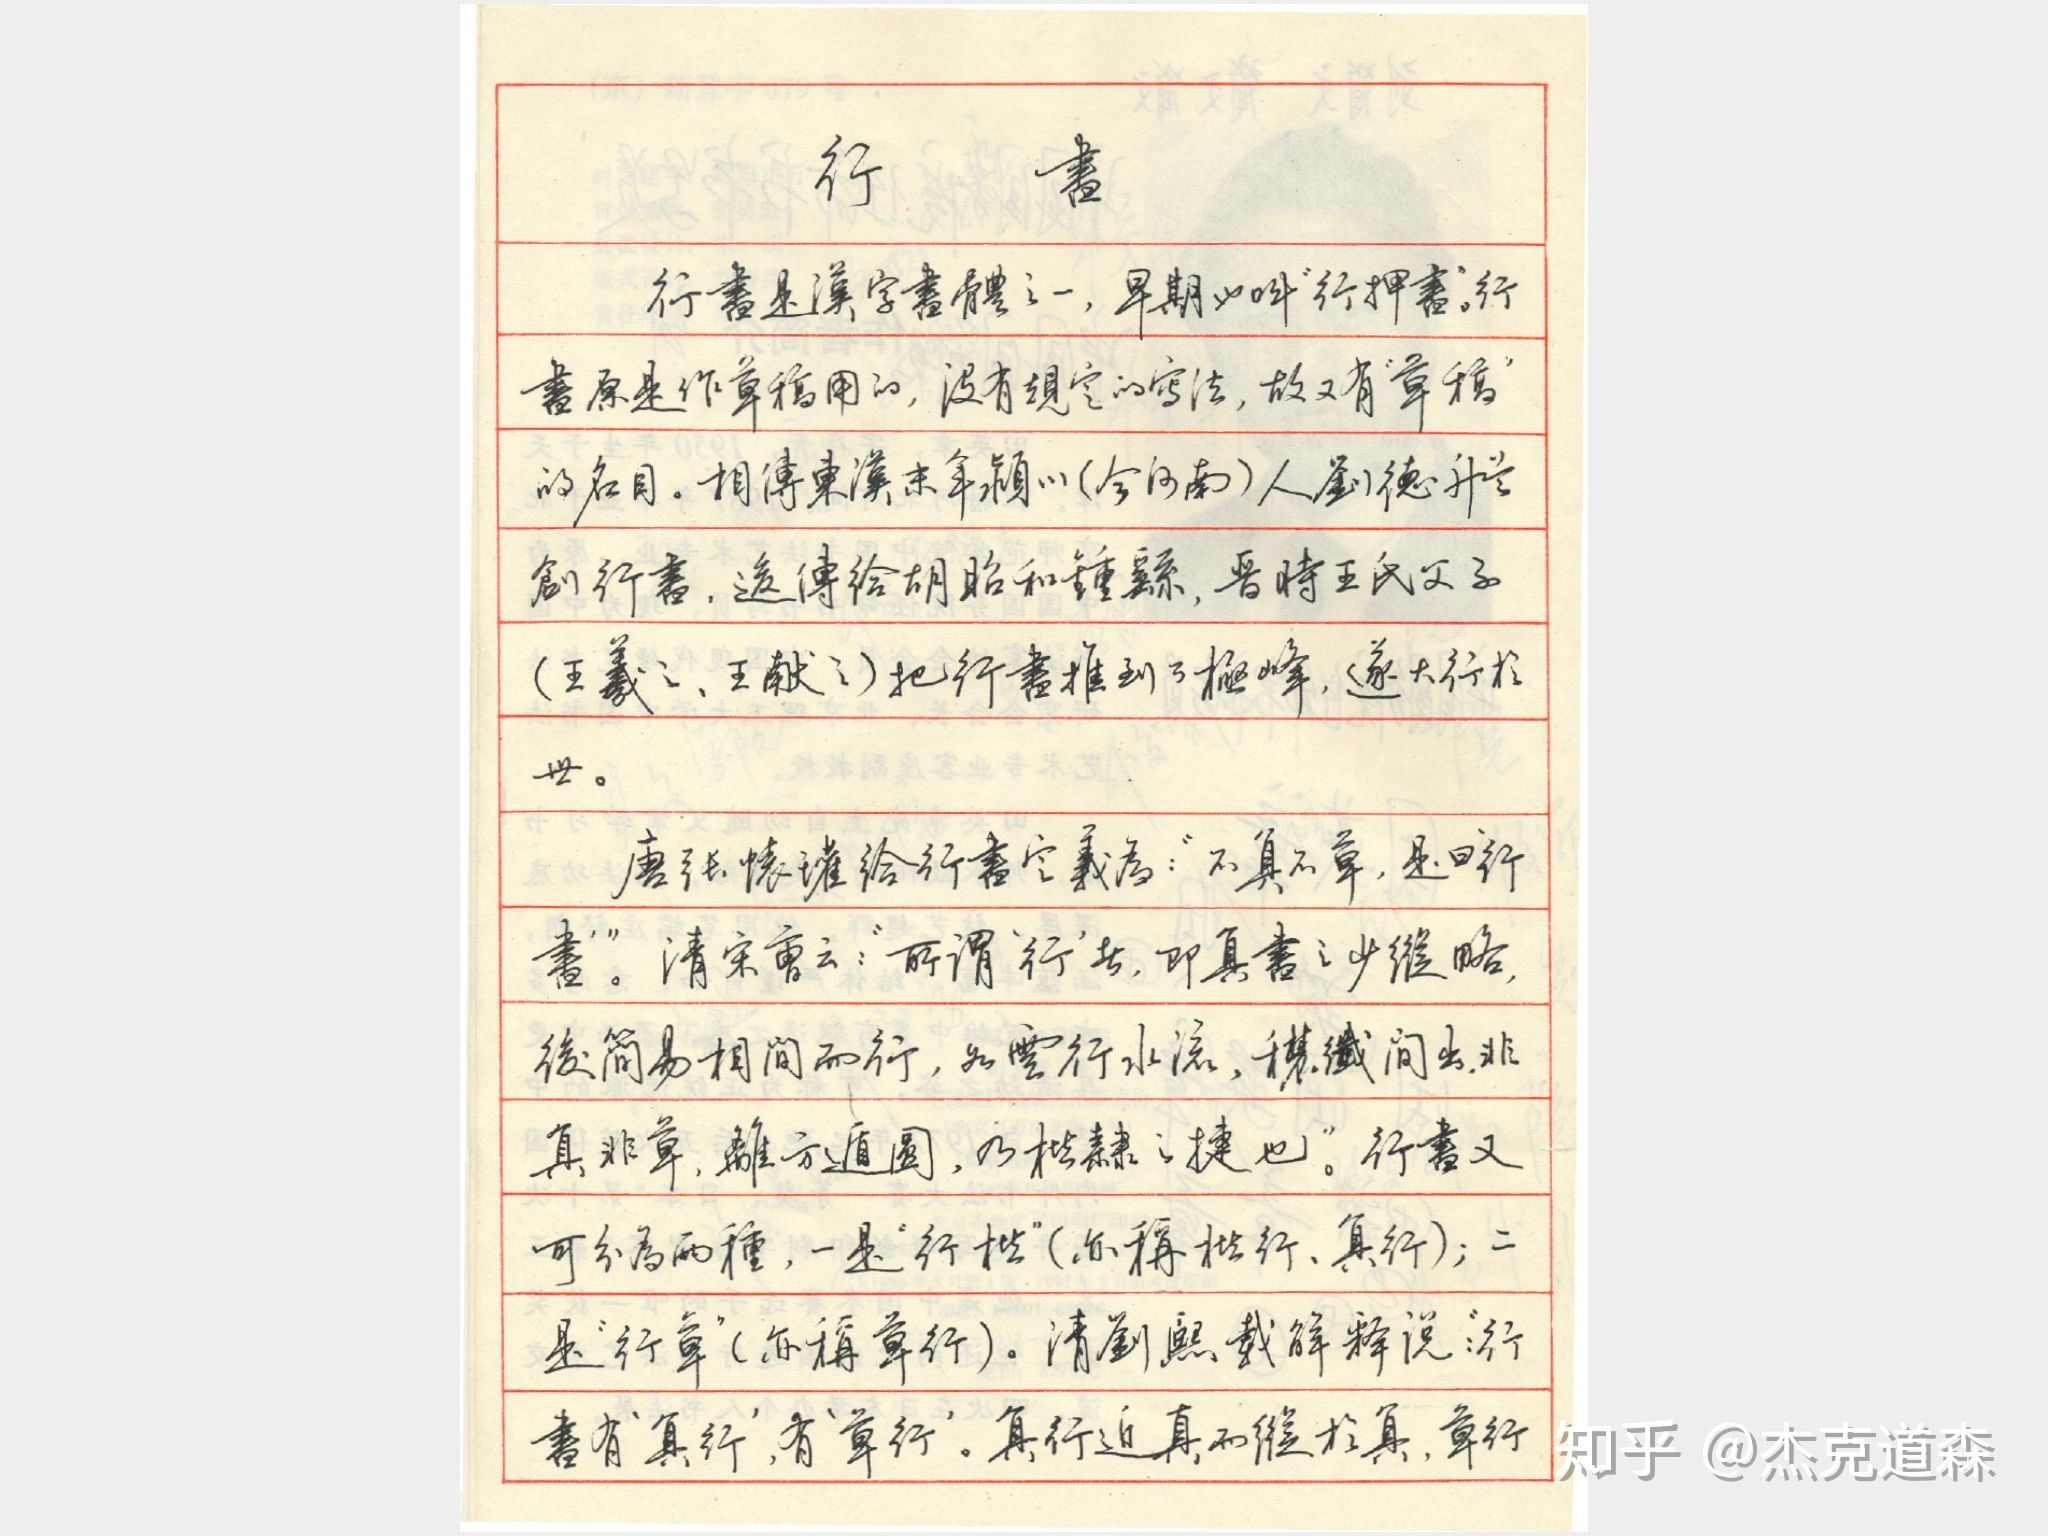 行 書
行書是漢字書體之一，早期也叫“行押書”。行
書原是作草稿用的，没有規定的寫法，故又有“草稿”
的名目。相傳東漢末年潁川（今河南）人劉德升首
創行書，後傳給胡昭和鍾繇，晉時王氏父子
（王羲之、王献之）把行書推到了極峰，遂大行於
世。
唐張懷瓘給行書定義為：“不真不草，是曰‘行
書’”。清宋曹云：“所謂‘行’者，即真書之少縱略，
後簡易相間而行，如雲行水流，穠纖間出，非
真非草，離方遁圓，乃楷隸之捷也”。行書又
可分為兩種，一是“行楷”（亦稱楷行、真行）；二
是“行草”（亦稱草行）。清劉熙載解釋説：“行
書有‘真行’，有‘草行’。真行近真而縱於真，草行
知乎 @杰克道森